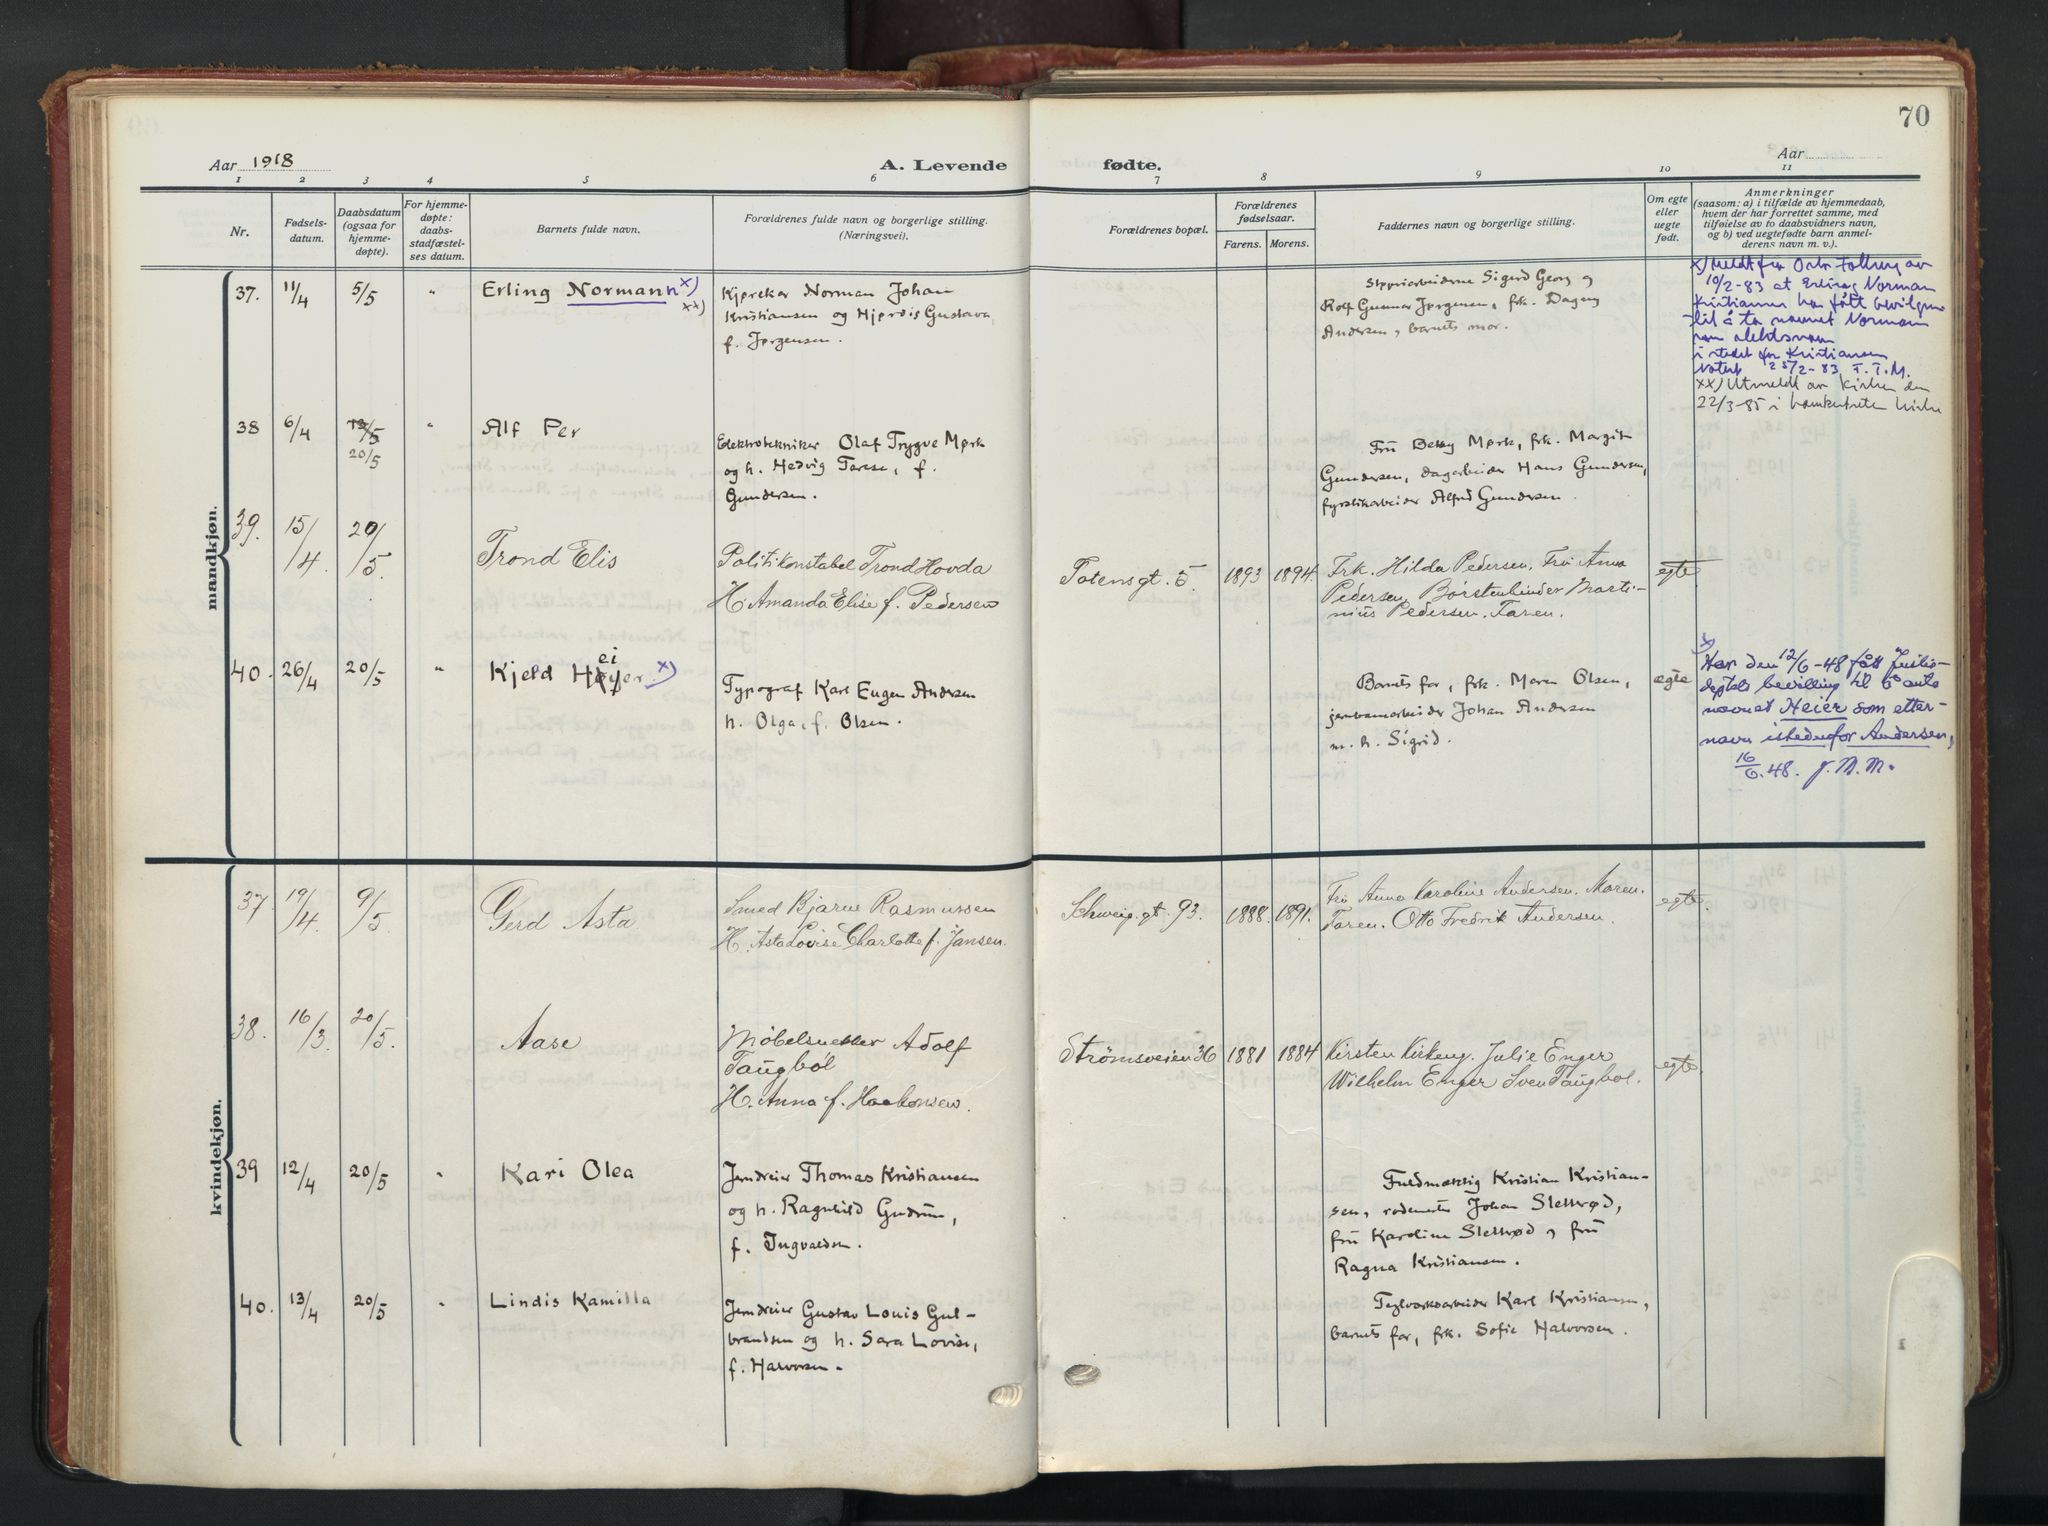 70
Aar 1918
A. Levende fødte.
Aar
1 2 3 4 5 6 7 8 9 10 11
Nr.
Fødsels-
datum.
Daabsdatum
(ogsaa for
hjemme-
døpte).
For hjemme-
døpte:
daabs-
stadfæstel-
ses datum.
Barnets fulde navn.
Forældrenes fulde navn og borgerlige stilling.
(Næringsvei).
Forældrenes bopæl.
Forældrenes
fødselsaar.
Farens. Morens.
Faddernes navn og borgerlige stilling.
Om egte
eller
uegte
født.
Anmerkninger
(saasom: a) i tilfælde av hjemmedaab,
hvem der har forrettet samme, med
tilføielse av to daabsvidners navn,
og b) ved uegtefødte barn anmel-
derens navn m. v.).
mandkjøn.
37. 11/4 5/5 " Erling Normann x)
xx)
Kjøreker Norman Johan
Kristiansen og Hjørdis Gustava
f. Jørgensen.
Sigurd Georg og
Rolf Gunnar Jørgensen, frk. Dagny
Andersen, barnets mor.
x) Meldt fra av
10/2-83 at Erling Norman
Kristiansen har fått bevilgn
til å ta navnet Normann
som slektsnavn
i stedet for Kristiansen
Notert 25/2-83 F.T.M.
xx) Utmeldt av kirken den
22/3-85 i kirke
38 6/4 20/5 " Alf Per
Elektrotekniker Olaf Trygve Mørk
og h. Hedvig Tarese, f.
Gundersen.
Fru Betsy Mørk, frk. Margit
Gundersen, dagarbeider Hans Gundersen,
fyrstikarbeider Alfred Gundersen.
39. 15/4. 20/5. Trond Elis
Politikonstabel Trond Hovda
H. Amanda Elise f. Pedersen
Totensgt. 5. 1893 1894.
Frk. Hilda Pedersen. Fru Anna
Pedersen. Børstenbinder Marti-
nius Pedersen. Faren.
egte
40. 26/4 20/5 " Kjeld Høyer x)
ei
Typograf Karl Eugen Andersen
h. Olga, f. Olsen.
Barnets far, frk. Maren Olsen,
jernbanearbeider Johan Andersen
m. h. Sigrid.
ægte
x)
Har den 12/6-48 fått Justis-
dep'ets bevilling til å anta
navnet Heier som etter-
navn istedenfor Andersen,
16/6.48. J. M. M.
kvindekjøn.
37 19/4. 9/5. Gerd Asta
Smed Bjarne Rasmussen
H. Asta Lovise Charlotte f. Jansen.
Schweig. gt. 93. 1888. 1891.
Fru Anna Karoline Andersen. Moren.
Faren. Otto Fredrik Andersen.
egte.
38. 16/3. 20/5. Aase
Møbelsnekker Adolf
Taugbøl
H. Anna f. Haakonsen.
Strømsveien 36 1881 1884
Kirsten Kirkeng. Julie Enger
Wilhelm Enger Sven Taugbøl.
egte.
39 12/4 20/5 " Kari Olea
Jerndreier Thomas Kristiansen
og h. Ragnhild Gudrun,
f. Ingvaldsen.
Fuldmæktig Kristian Kristian-
sen, rodemester Johan Slettrød,
fru Karoline Slettrød og fru
Ragna Kristiansen.
40. 13/4 20/5 " Lindis Kamilla
Jerndreier Gustav Louis Gul-
brandsen og h. Sara Lovise,
f. Halvorsen.
Teglverksarbeider Karl Kristiansen,
barnets far, frk. Sofie Halvorsen.